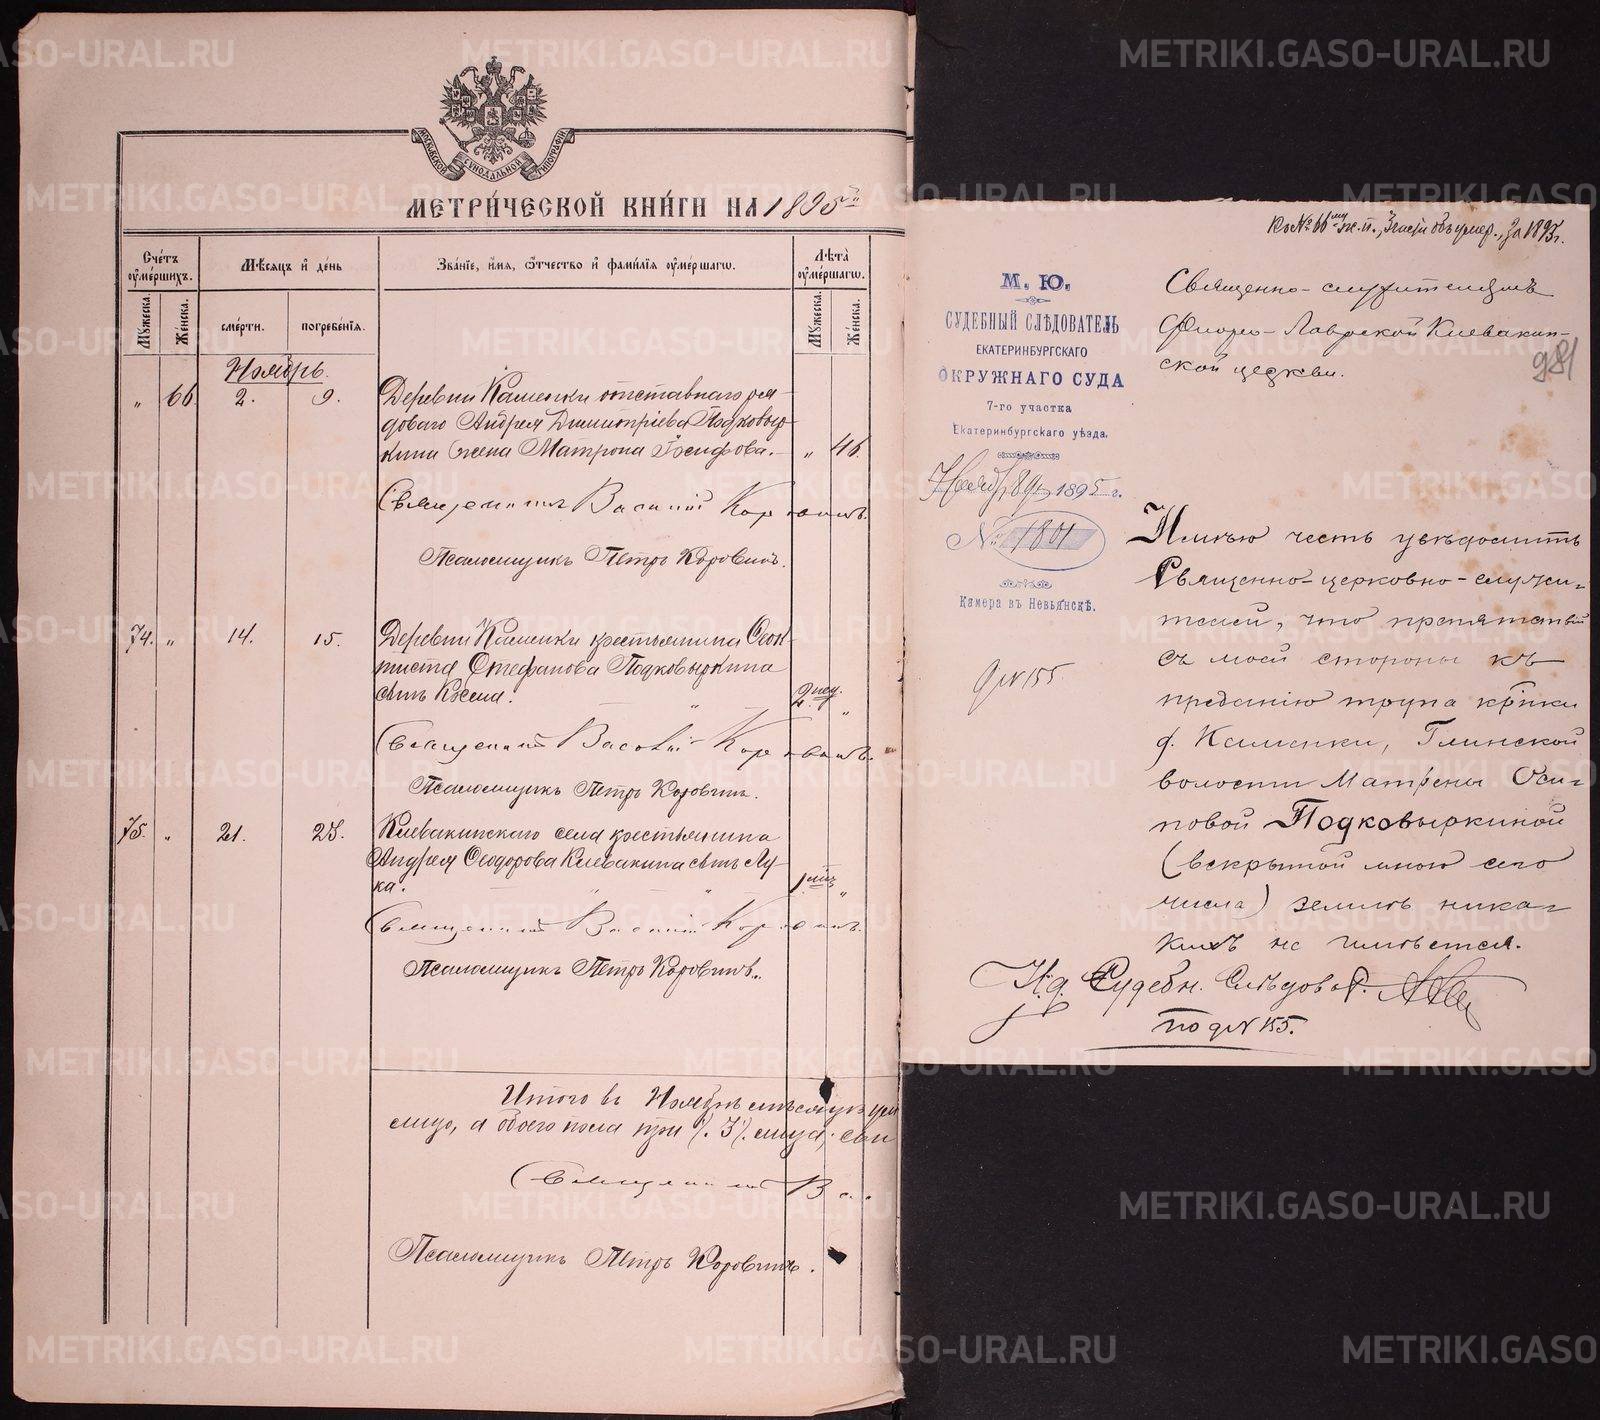 МОСКОВСКОЙ СѴНОДАЛЬНОЙ ТИПОГРАФІИ
МЕТРИ́ЧЕСКОЙ КНИ́ГИ НА 1895й
Счетъ оумершихъ.
Мѣсяцъ и день
Званіе, имя, отчество и фамилія оумершагω.
Лѣта оумершагω.
Мужеска.
Женска.
смерти.
погребенія.
Мужеска.
Женска.
Ноябрь.
„ 66 2. 9. Деревни Каменки отставнаго ря-
доваго Андрея Димитріева Подковыр-
кина жена Матрона Іосифова. „ 46.
Священникъ Василій Коровинъ.
Псаломщикъ Петръ Коровинъ.
74. „ 14. 15. Деревни Каменки крестьянина Ѳеок-
тиста Стефанова Подковыркина
сынъ 2 нед. „
Священникъ Василій Коровинъ.
Псаломщикъ Петръ Коровинъ.
75. „ 21. 23. Клевакинскаго села крестьянина
Андрея Ѳеодорова Клевакина сынъ Лу-
ка. 1 мѣс. „
Священникъ Василій Коровинъ.
Псаломщикъ Петръ Коровинъ.
Итого въ Ноябрѣ мѣсяцѣ
лицо, а обоего пола три /. 3 /. лица;
Священникъ
Псаломщикъ Петръ Коровинъ.
Къ № 66му ж. п., 3 части объ умер., за 1895 г.
М. Ю.
СУДЕБНЫЙ СЛѢДОВАТЕЛЬ
ЕКАТЕРИНБУРГСКАГО
ОКРУЖНАГО СУДА
7-го участка
Екатеринбургскаго уѣзда.
Ноября 8 дн. 1895 г.
№ 1801
Камера въ Невьянскѣ.
Священно-служителямъ
Флоро-Лаврской Клевакин-
ской церкви.
981
Имѣю честь увѣдомить
Священно-церковно-служи-
телей, что препятствій
съ моей стороны къ
преданію трупа кр-нки
д. Каменки, Глинской
волости Матрены Оси-
повой Подковыркиной
(вскрытой мною сего
числа) землѣ ника-
кихъ не имѣется.
д № 155.
И. д. Судебн. Слѣдов.
по д № 155.
METRIKI.GASO-URAL.RU